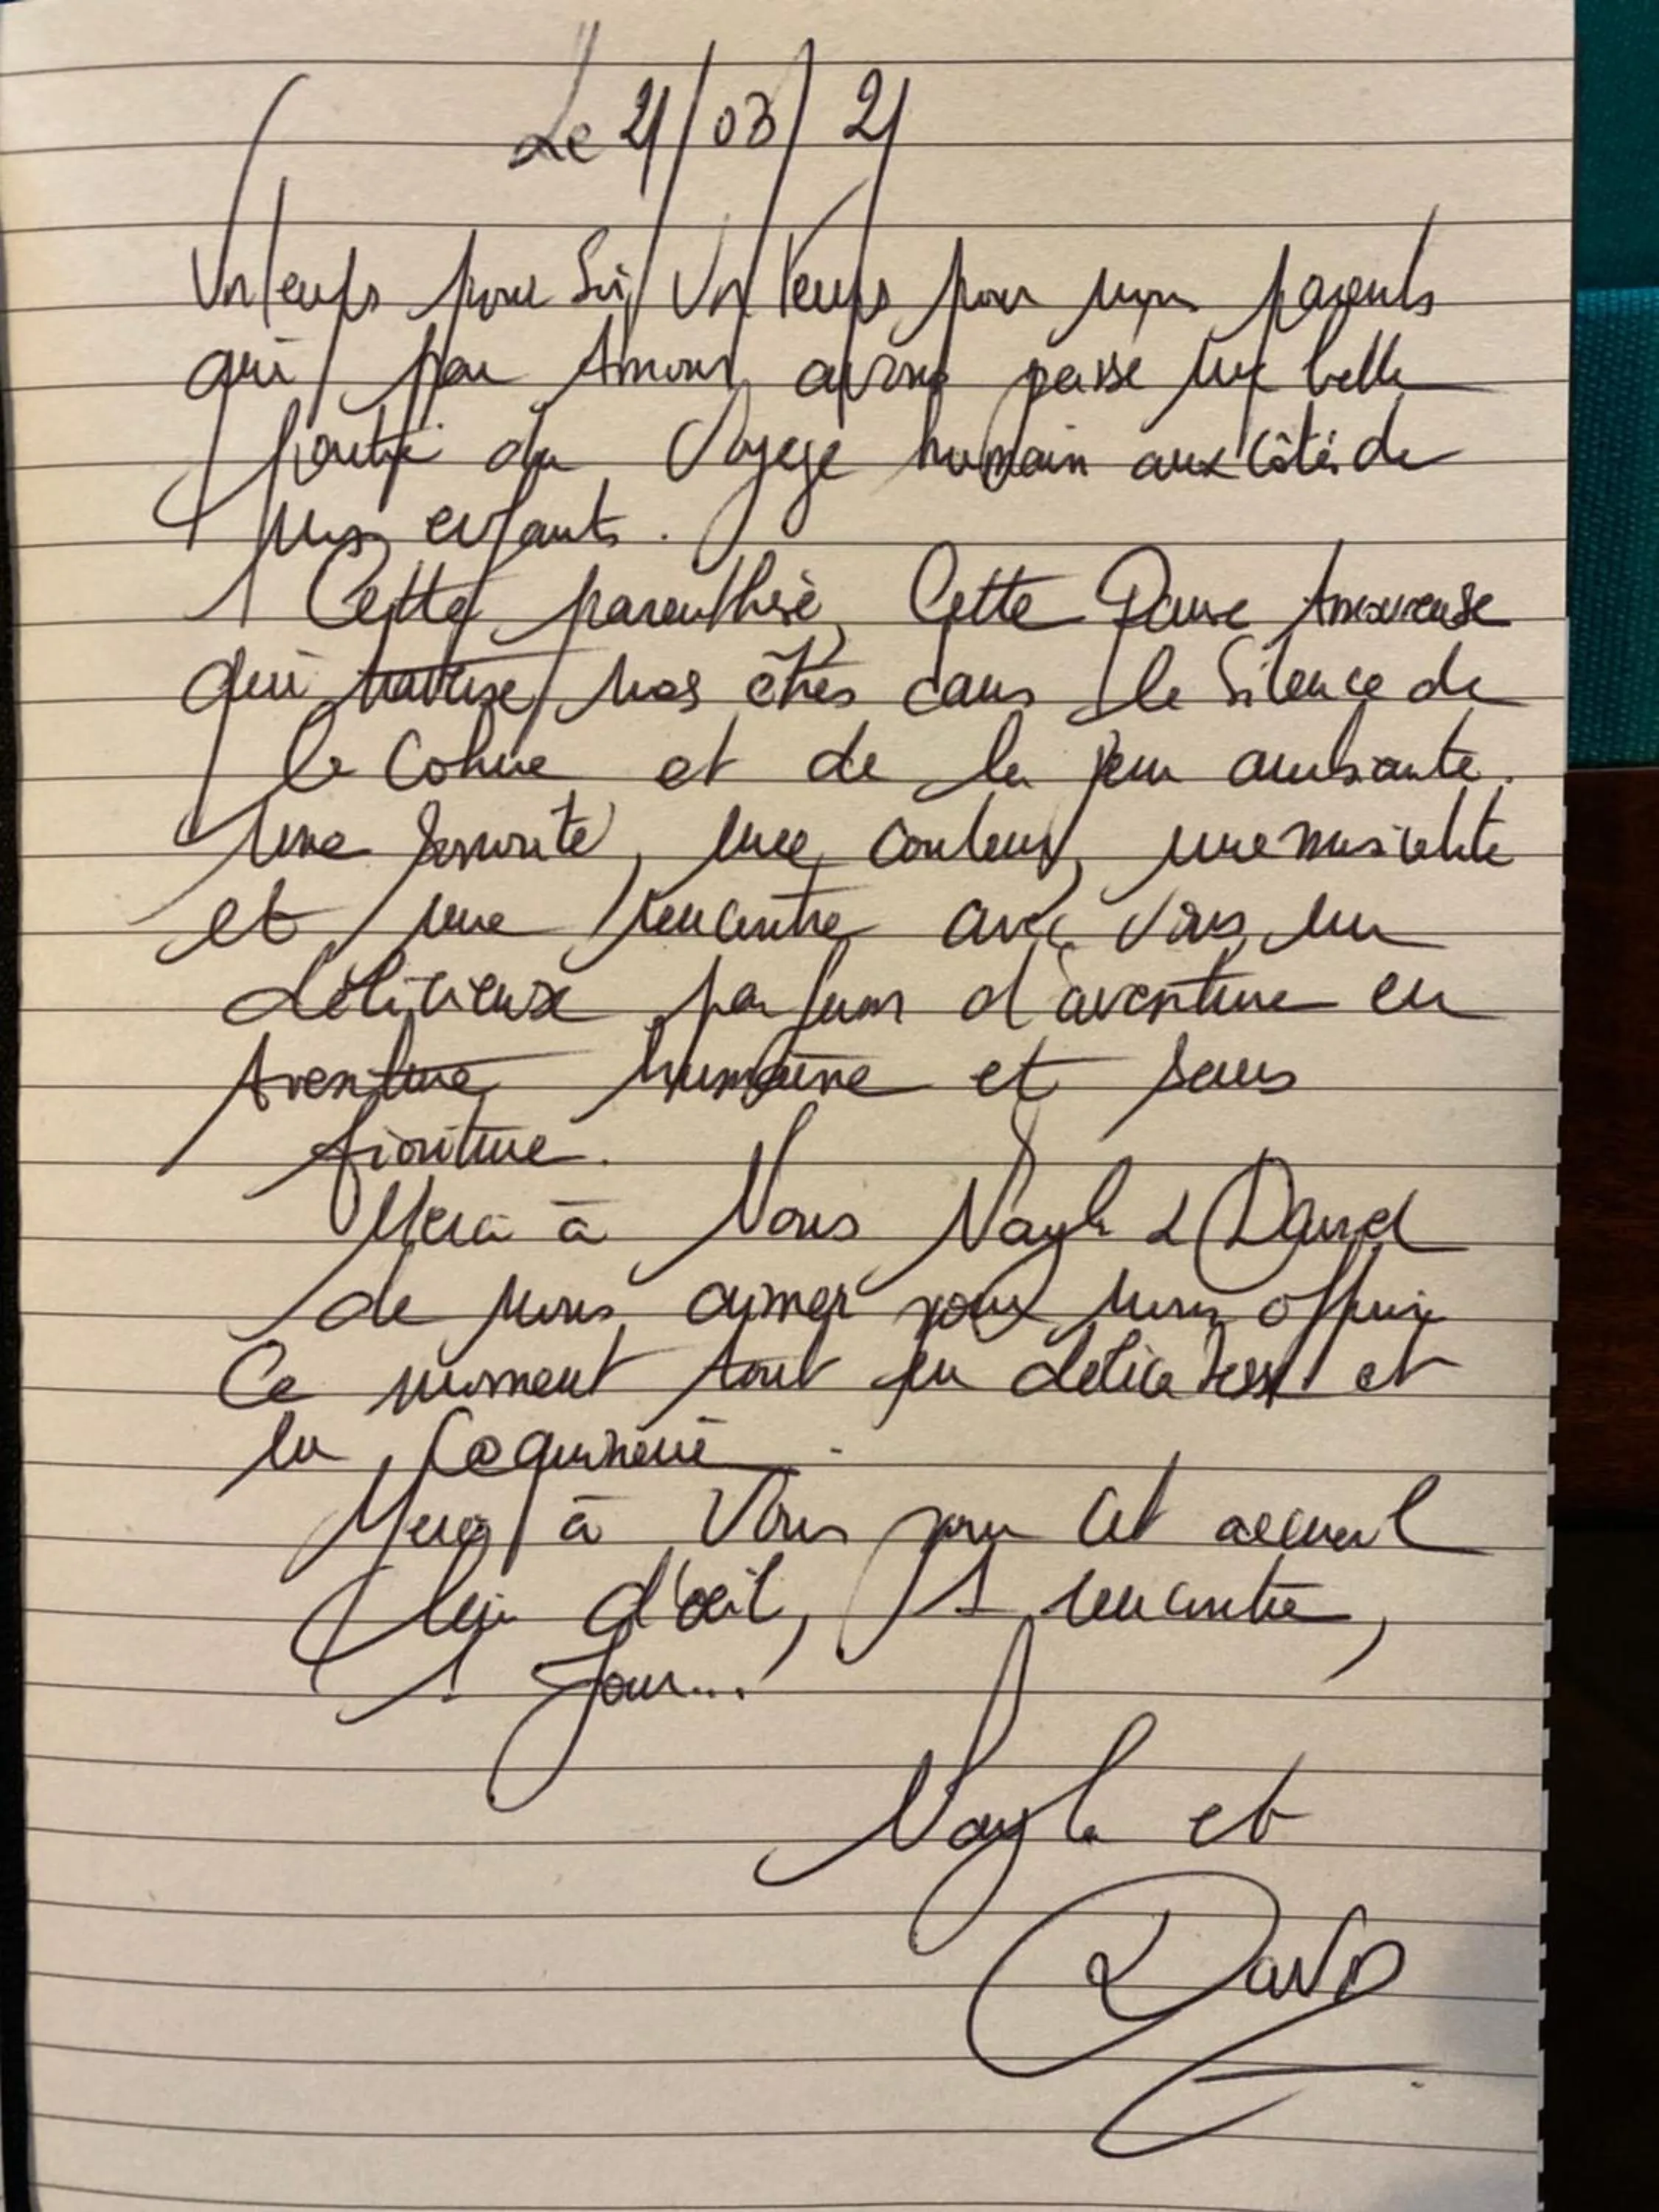 Le 21/03/21
Un temps pour Soi, Un Temps pour nous parents
qui par Amour avons passé une belle
partie du Voyage humain aux côtés de
nos enfants.
Cette parenthèse, Cette Danse Amoureuse
qui traverse nos êtres dans le Silence de
la Cohue et de la peur ambiante.
Une sonorité, une couleur, une musicalité
et une rencontre avec Vous, un
délicieux parfum d'aventure en
Aventure humaine et sans
fioriture.
Merci à Nous Nayla & David
de nous aimer pour nous offrir
Ce moment tout en délicatesse et
en Coquinerie.
Merci à Vous pour cet accueil
Clin d'œil, 1 rencontre,
1 Jour...
Nayla et
David